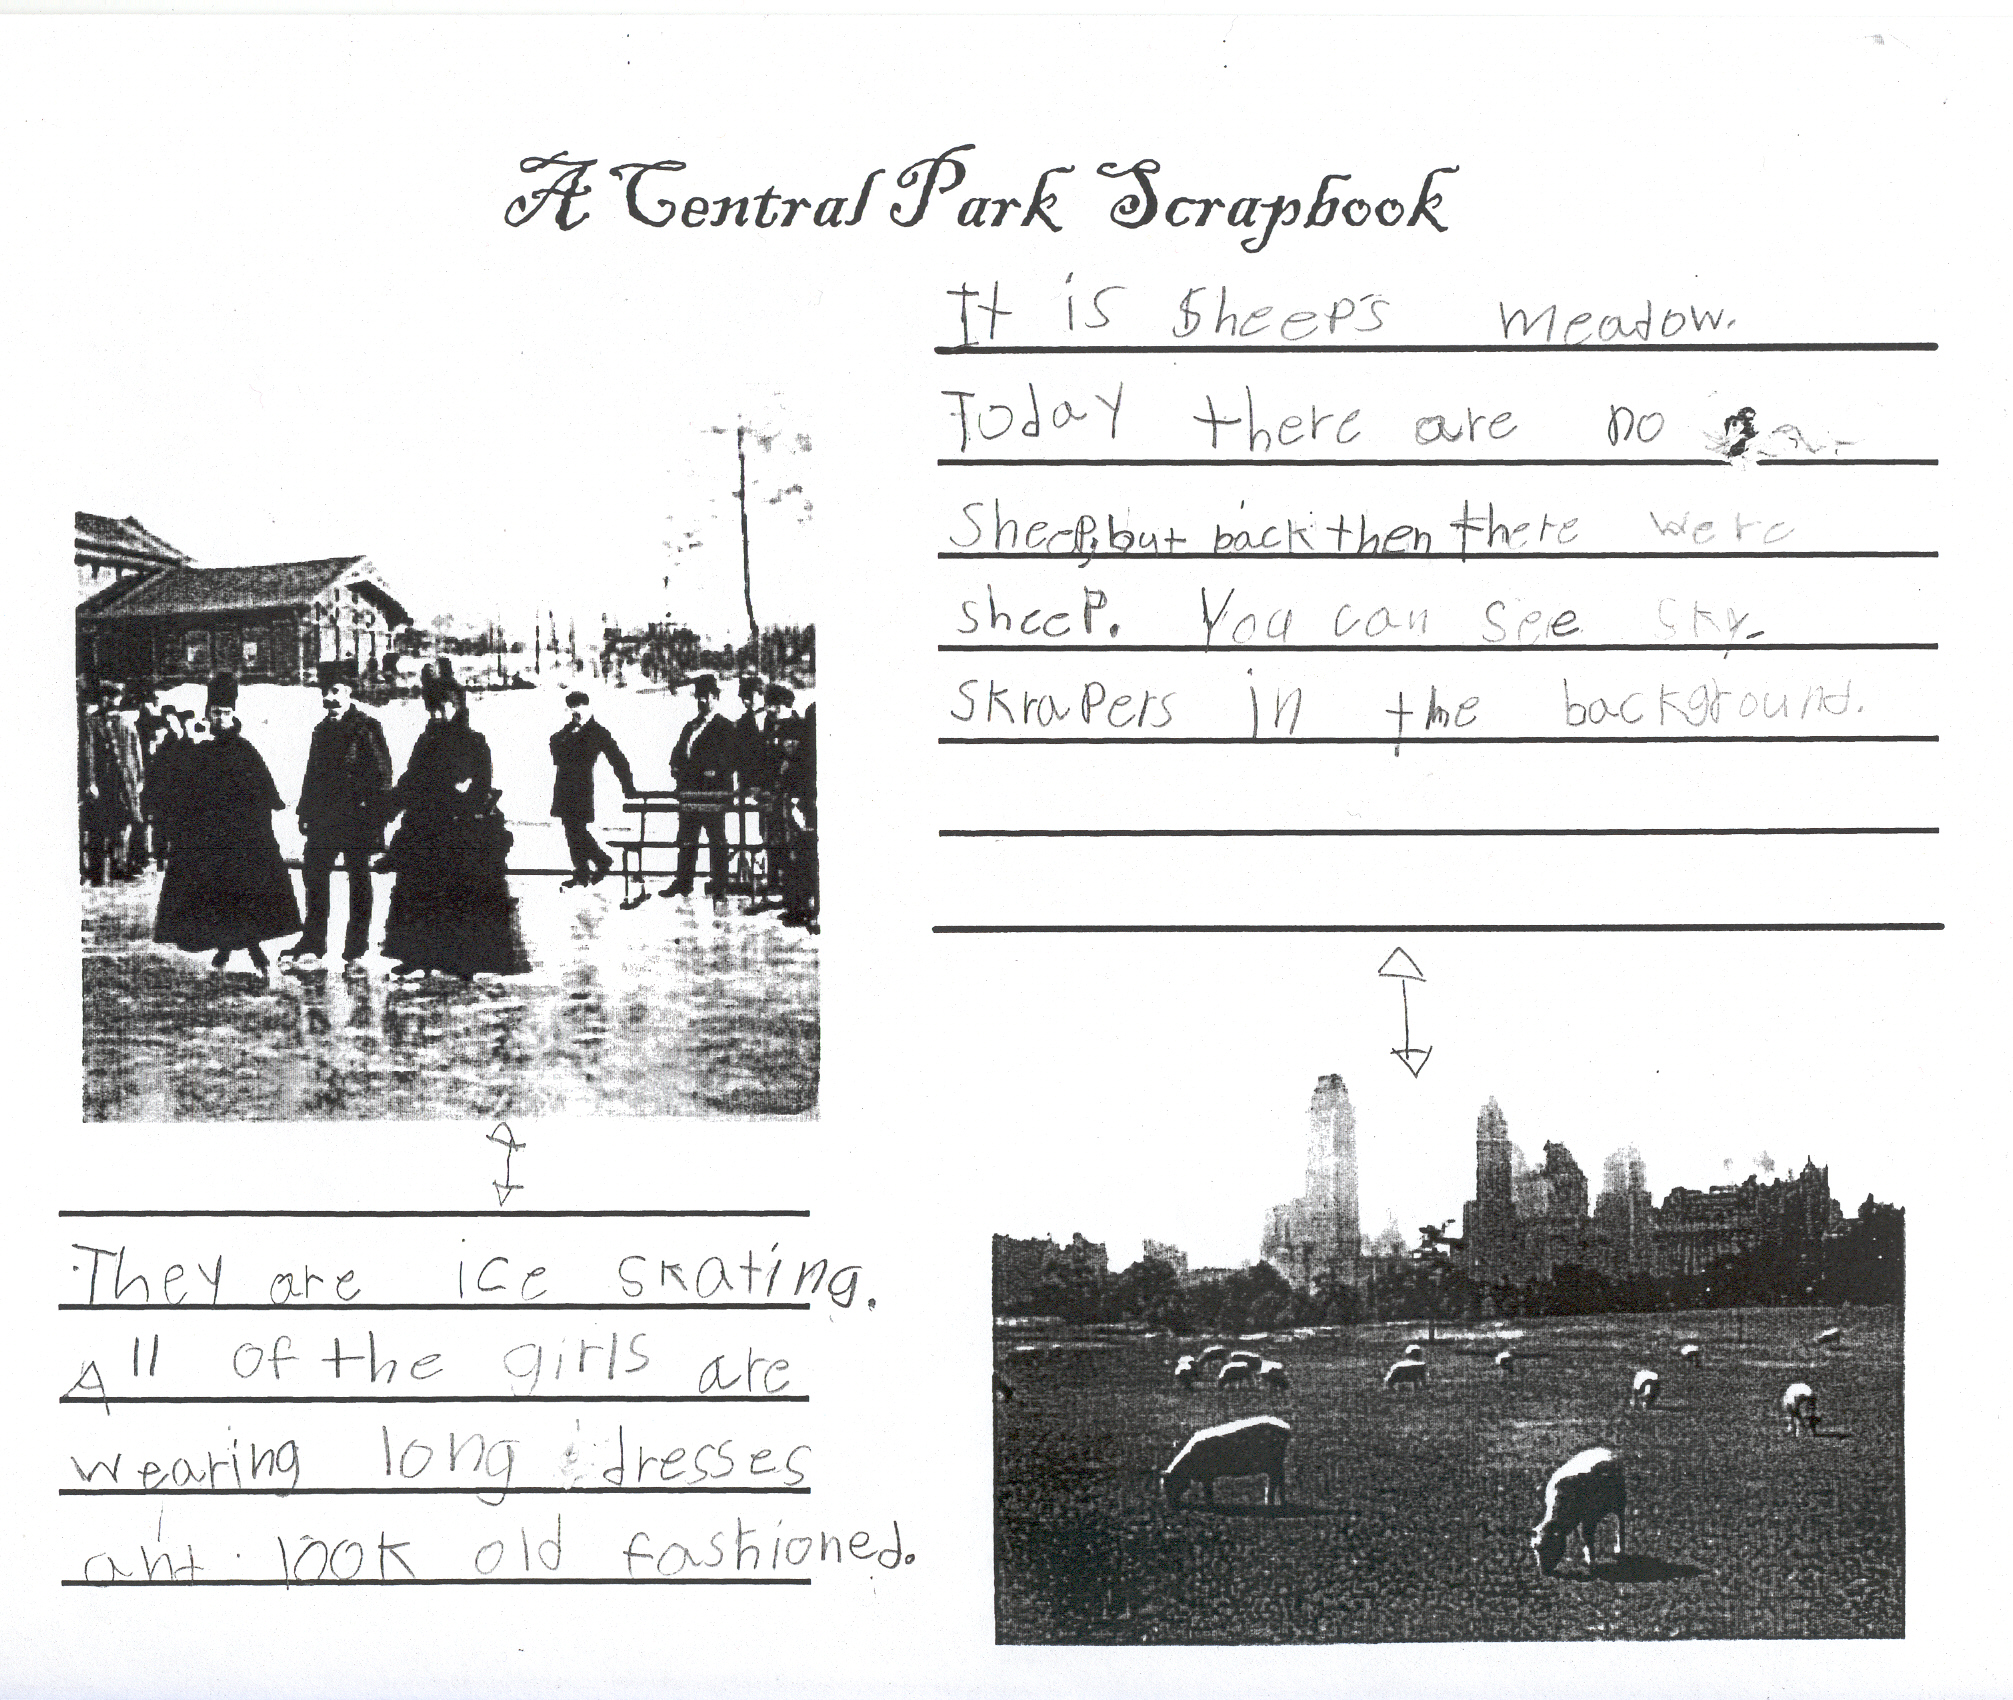 A Central Park Scrapbook
It is Sheep's meadow.
Today there are no
Sheep, but back then there were
sheep. You can see sky-
skrapers in the background.
They are ice skating.
All of the girls are
wearing long dresses
ant look old fashioned.